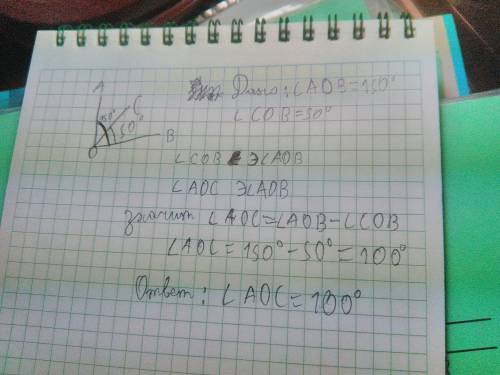 A
C
150°
50°
B
O
Дано: ∠AOB=150°
∠COB=50°
∠COB ∋∠AOB
∠AOC ∋∠AOB
значит ∠AOC=∠AOB-∠COB
∠AOC=150°-50°=100°
Ответ: ∠AOC=100°